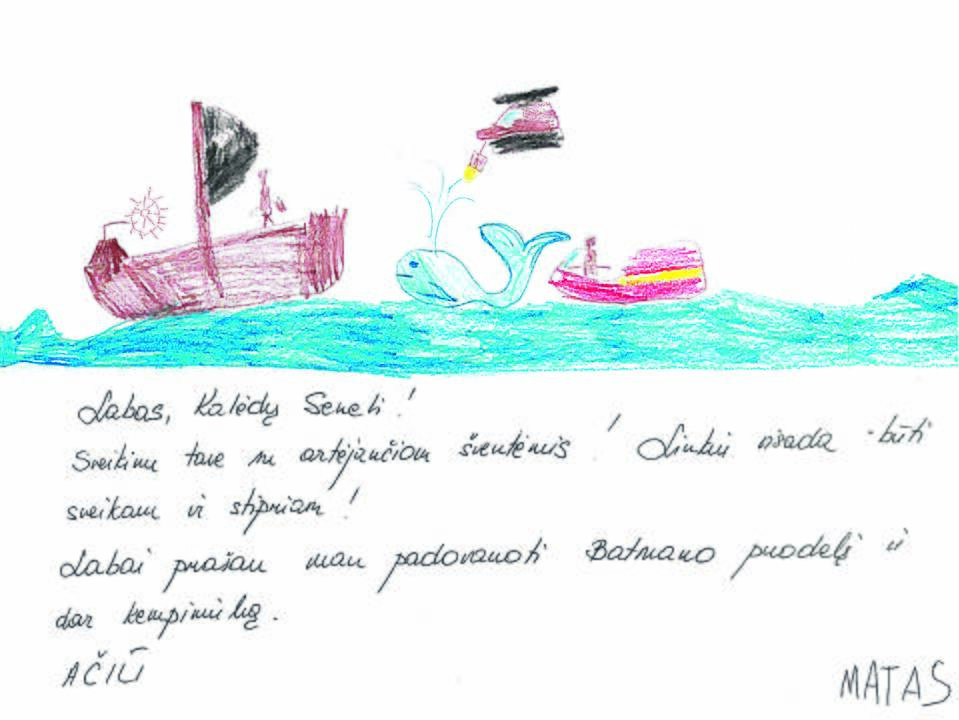 Labas, Kalėdų Seneli!
Sveikinu tave su artėjančiom šventėmis! Linkiu visada būti
sveikam ir stipriam!
Labai prašau man padovanoti Batmano puodelį ir
dar kempiniuką.
AČIŪ
MATAS